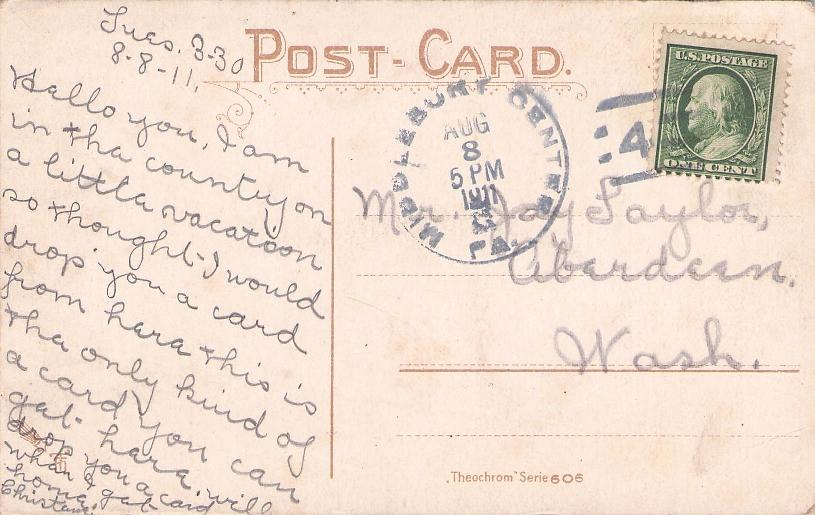 Tues. 3-30
8-8-11.
POST-CARD.
Hello you, I am
in the country on
a little vacation
so thought I would
drop you a card
from here this is
the only kind of
a card you can
get here. will
drop you a card
when I get
home.
MIDDLEBURY CENTER
AUG
8
5 PM
1911
PA.
4
U.S. POSTAGE
ONE CENT
Mr. Jay Taylor,
Aberdeen.
Wash.
„Theochrom" Serie 606